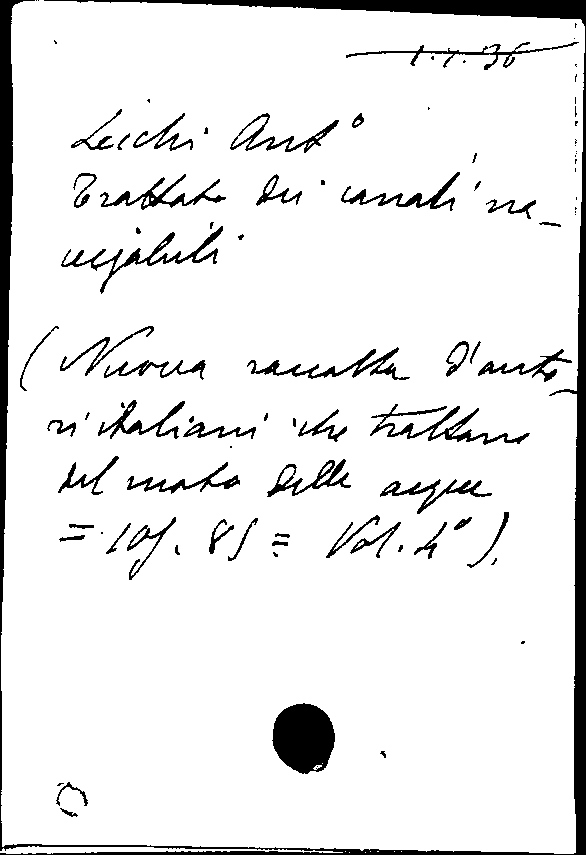 1.7.36
Lecchi Antº
Trattato dei canali na_
vigabili
(Nuova raccolta d'auto_
ri italiani che trattano
del moto delle acque
= 10f. 85 = Vol. 4º).